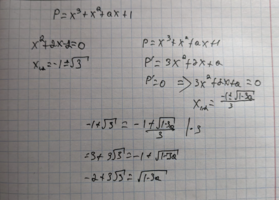 P = x³ + x² + ax + 1
x² + 2x - 2 = 0
x₁,₂ = -1 ± √3
P = x³ + x² + ax + 1
P' = 3x² + 2x + a
P' = 0 ⟹ 3x² + 2x + a = 0
x₁,₂ = (-1 ± √(1-3a))/3
-1 + √3 = (-1 + √(1-3a))/3 | ·3
-3 + 3√3 = -1 + √(1-3a)
-2 + 3√3 = √(1-3a)